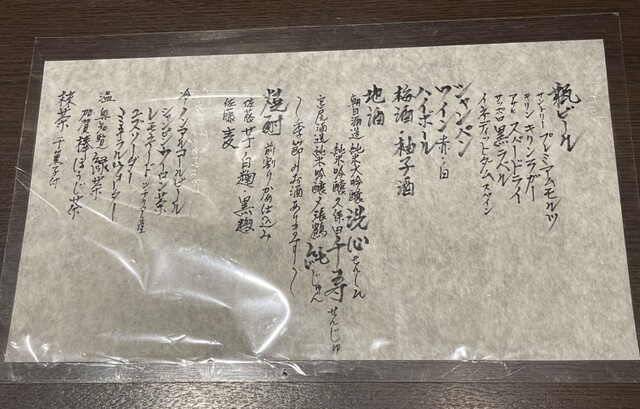 瓶ビール
サントリー プレミアムモルツ
キリン キリンラガー
アサヒ スーパードライ
サッポロ 黒ラベル
イネディットダム スペイン
シャンパン
ワイン 赤・白
ハイボール
梅酒・柚子酒
地酒
朝日酒造 純米大吟醸 洗心 せんしん
純米吟醸 久保田 千寿 せんじゅ
宮尾酒造 純米吟醸 〆張鶴 純 じゅん
〜季節のお酒あります〜
焼酎 前割り 仕込み
佐藤 芋 白麹 黒麹
佐藤 麦
冷 ノンアルコールビール
ジャスミンウーロン茶
レモネード
コスノーダー
ミネラルウォーター
温 奥知覧 緑茶
加賀棒ほうじ茶
抹茶 干菓子付